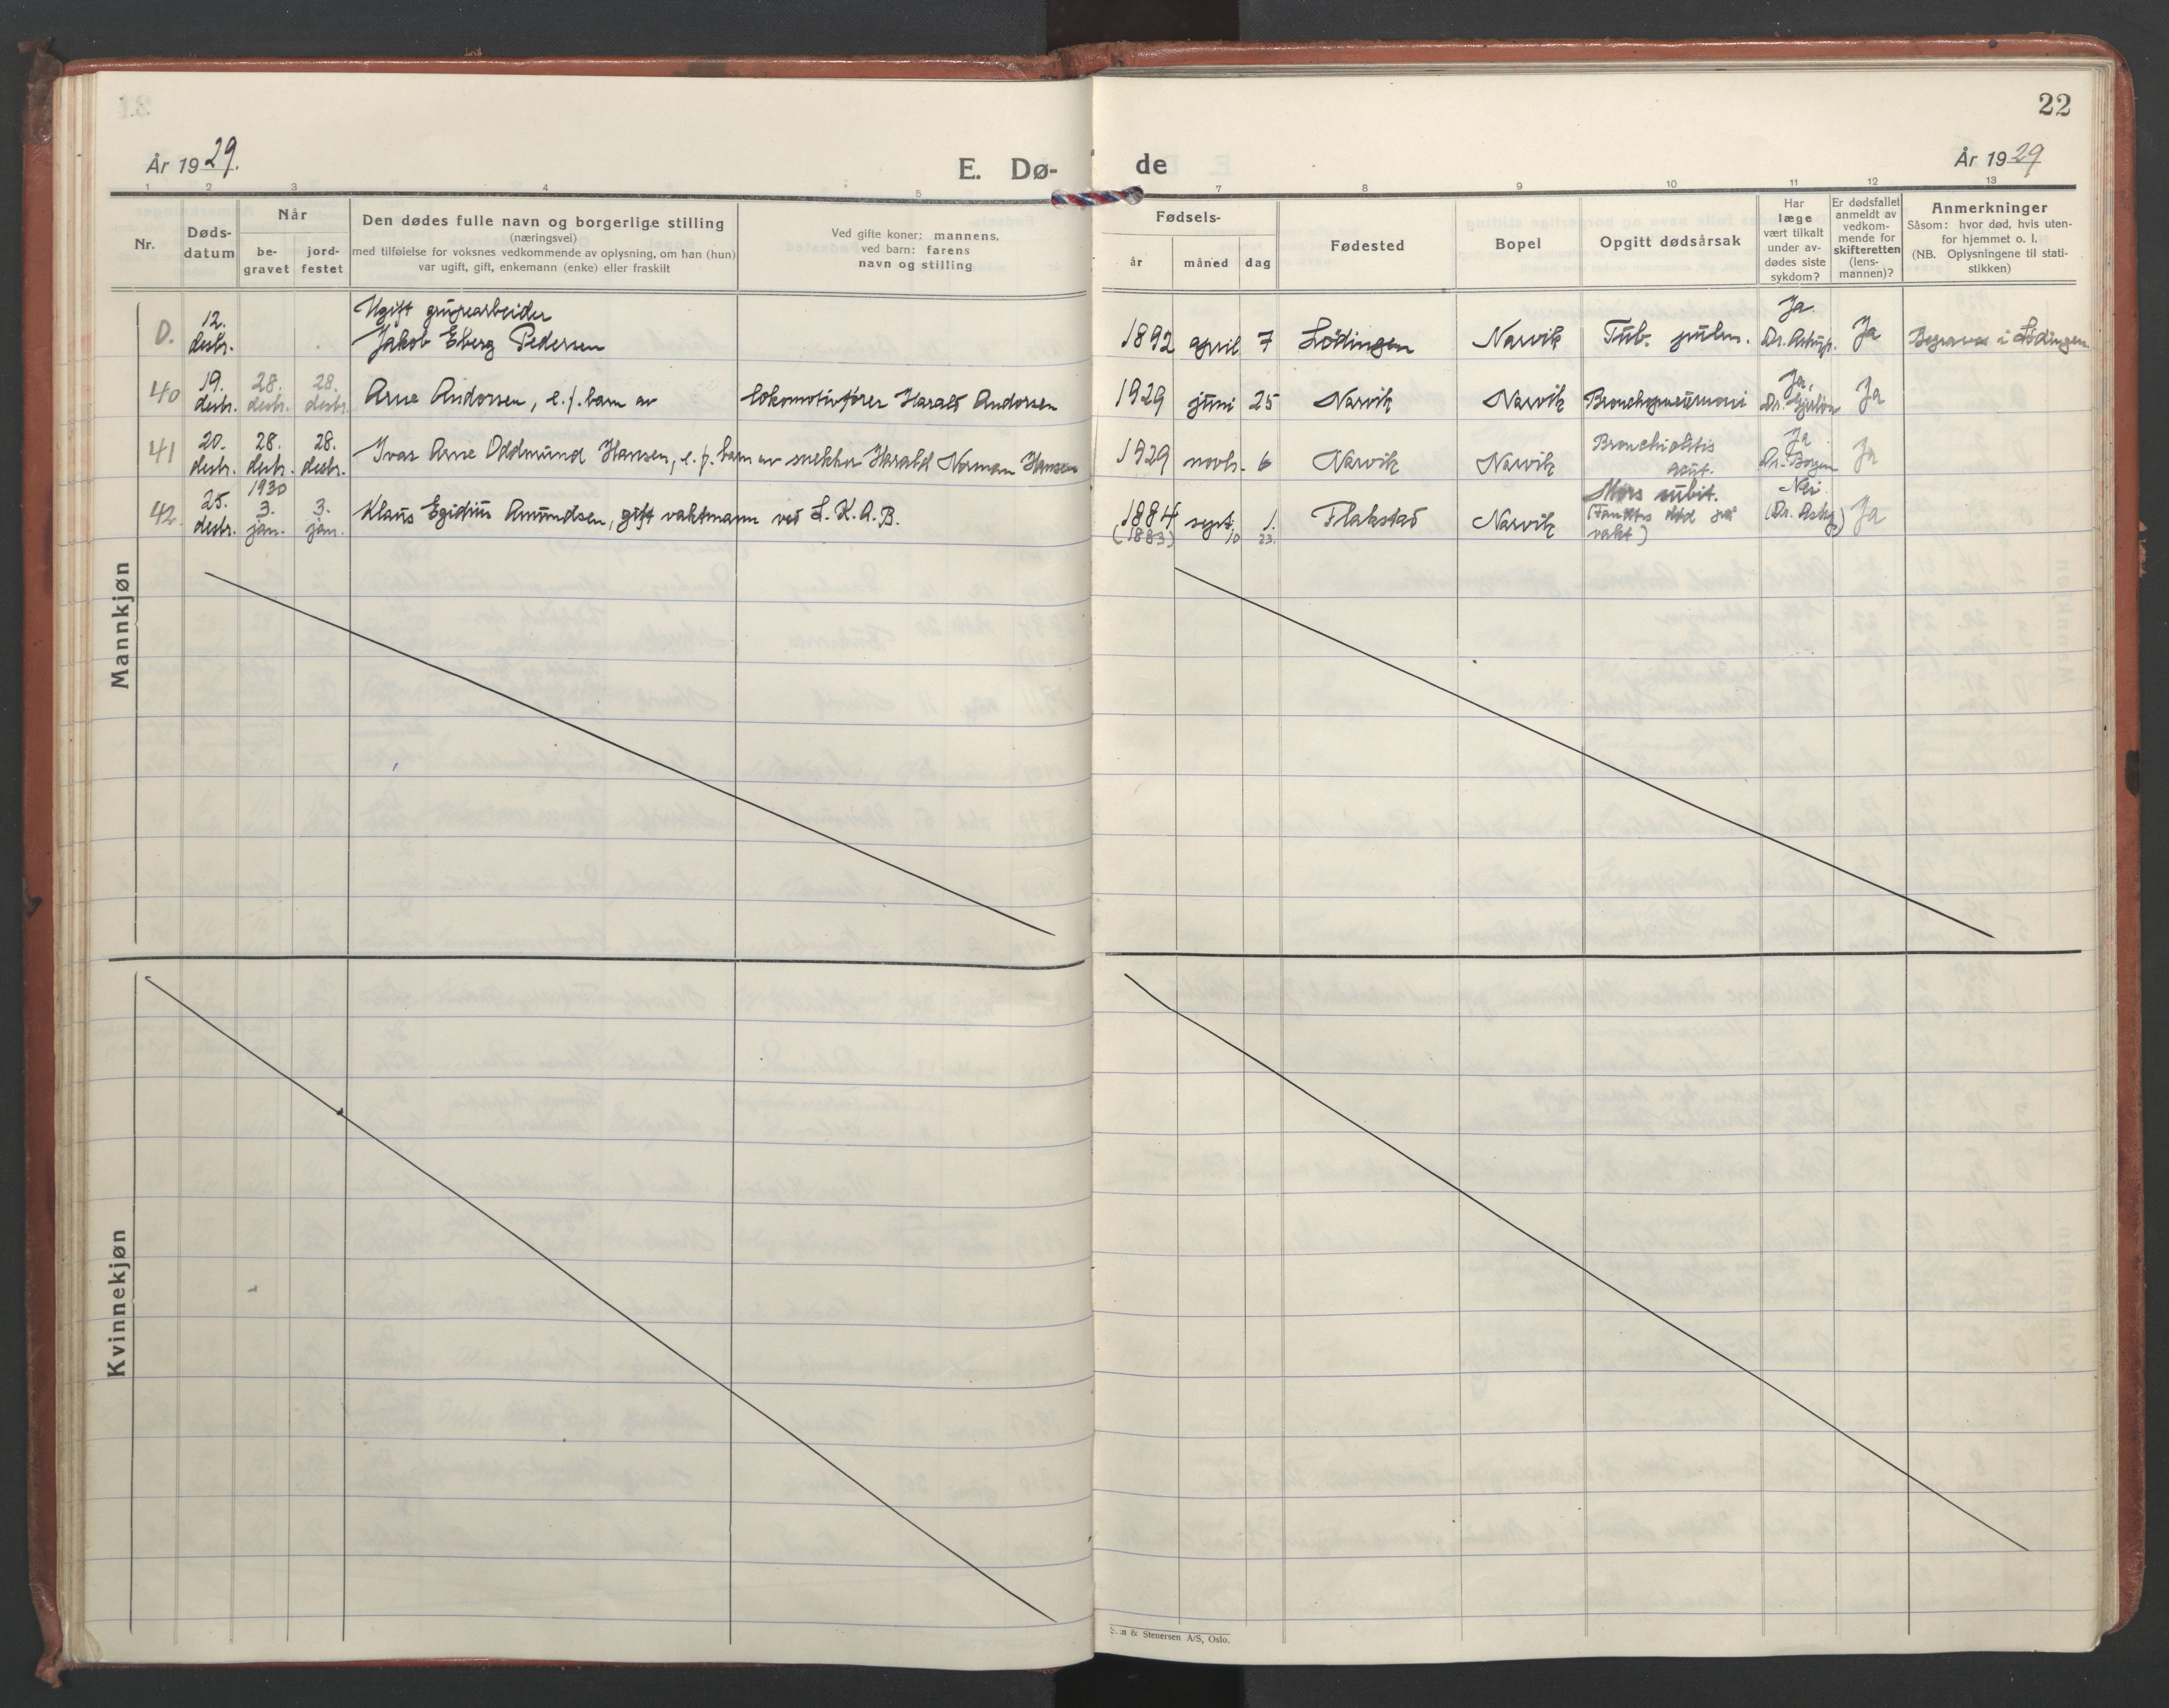 22
År 1929.
E. Dø-
de
År 1929
1 2 3 4 5 7 8 9 10 11 12 13
Nr.
Døds-
datum
Når
be-
gravet
jord-
festet
Den dødes fulle navn og borgerlige stilling
(næringsvei)
med tilføielse for voksnes vedkommende av oplysning, om han (hun)
var ugift, gift, enkemann (enke) eller fraskilt
Ved gifte koner: mannens,
ved barn: farens
navn og stilling
Fødsels-
år
måned
dag
Fødested
Bopel
Opgitt dødsårsak
Har
læge
vært tilkalt
under av-
dødes siste
sykdom?
Er dødsfallet
anmeldt av
vedkom-
mende for
skifteretten
(lens-
mannen)?
Anmerkninger
Såsom: hvor død, hvis uten-
for hjemmet o. l.
(NB. Oplysningene til stati-
stikken)
Mannkjøn
Ugift grubearbeider
0. 12. desbr. Jakob Eberg Pedersen 1892 april 7 Lödingen Narvik Tub. pulm. Ja. Dr. Astrup. Ja Begraves i Lödingen
40 19. desbr. 28. desbr. 28. desbr. Arne Andorsen, e. f. barn av lokomotivfører Harald Andorsen 1929 juni 25 Narvik Narvik Bronchopneumoni Ja, Dr. Ja
41 20. desbr. 28. desbr. 28. desbr. Ivar Arne Oddmund Hansen, e. f. barn av snekker Harald Norman Hansen 1929 novb. 6 Narvik Narvik Bronchiolitis acut. Ja Dr. Borgen Ja
1930
42. 25. desbr. 3. jan. 3. jan. Klaus Egidius Amundsen, gift vaktmann ved L. K. A. B. 1884 sept. 1. Flakstad Narvik Mors subit. Nei (Dr. ) Ja
(1883) 10 23. (Fanttes död på
vakt)
Kvinnekjøn
& Stenersen A/S, Oslo.